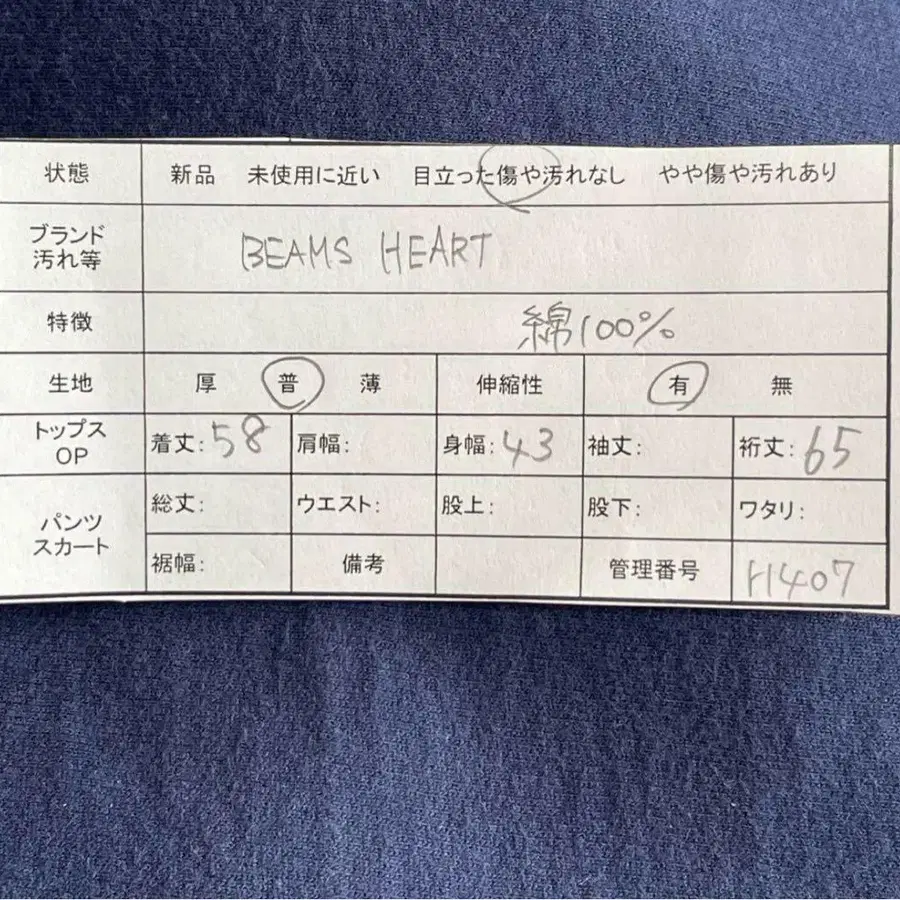 状態 新品 未使用に近い 目立った傷や汚れなし やや傷や汚れあり
ブランド
汚れ等 BEAMS HEART
特徴 綿100%
生地 厚 普 薄 伸縮性 有 無
トップス
OP 着丈:58 肩幅: 身幅:43 袖丈: 裄丈:65
総丈: ウエスト: 股上: 股下: ワタリ:
パンツ
スカート
裾幅: 備考 管理番号 H407